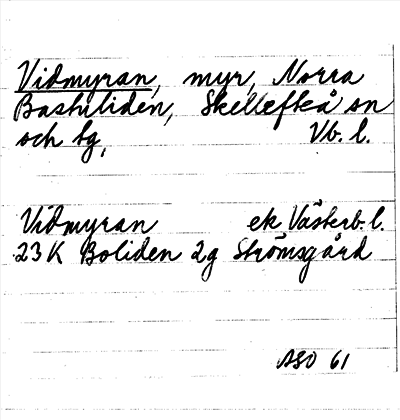 Vidmyran, myr, Norra
Bastuliden, Skellefteå sn
och tg, Vb. l.
Vidmyran ek Västerb. l.
23 K Boliden 2g Strömsgård
ASO 61